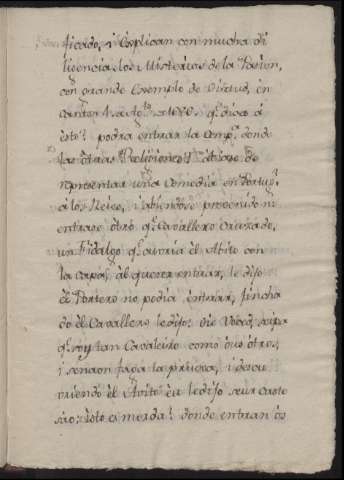 ticado, i explican con mucha di
ligencia los Misterios de la Passion,
con grande Exemplo de Virtud, en
Canton 1. Agto. 1680. q. dira á
esto? podra entrar la Comp.a donde
las otras Religiones? abiase de
representar una Comedia en Portug.
á los Reies, i abiendose prevenido no
entrase otro q. Cavallero Cruzado,
un Fidalgo q. el Abito con
la capa, al querer entrar, le dijo
el Portero no podia entrar, hincha
do el Cavallero le dijo: 
q. soy tan Cavaleiro como os otros,
i senaon faça la prueua, i descu
uriendo el Abito le dijo seu Casto
sao: esto es merda? donde entran os